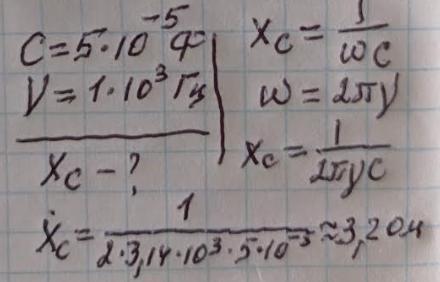 C = 5·10⁻⁵ Ф
ν = 1·10³ Гц
Xc - ?
Xc = 1/ωC
ω = 2πν
Xc = 1/2πνC
Xc = 1/2·3,14·10³·5·10⁻⁵ ≈ 3,2 Ом